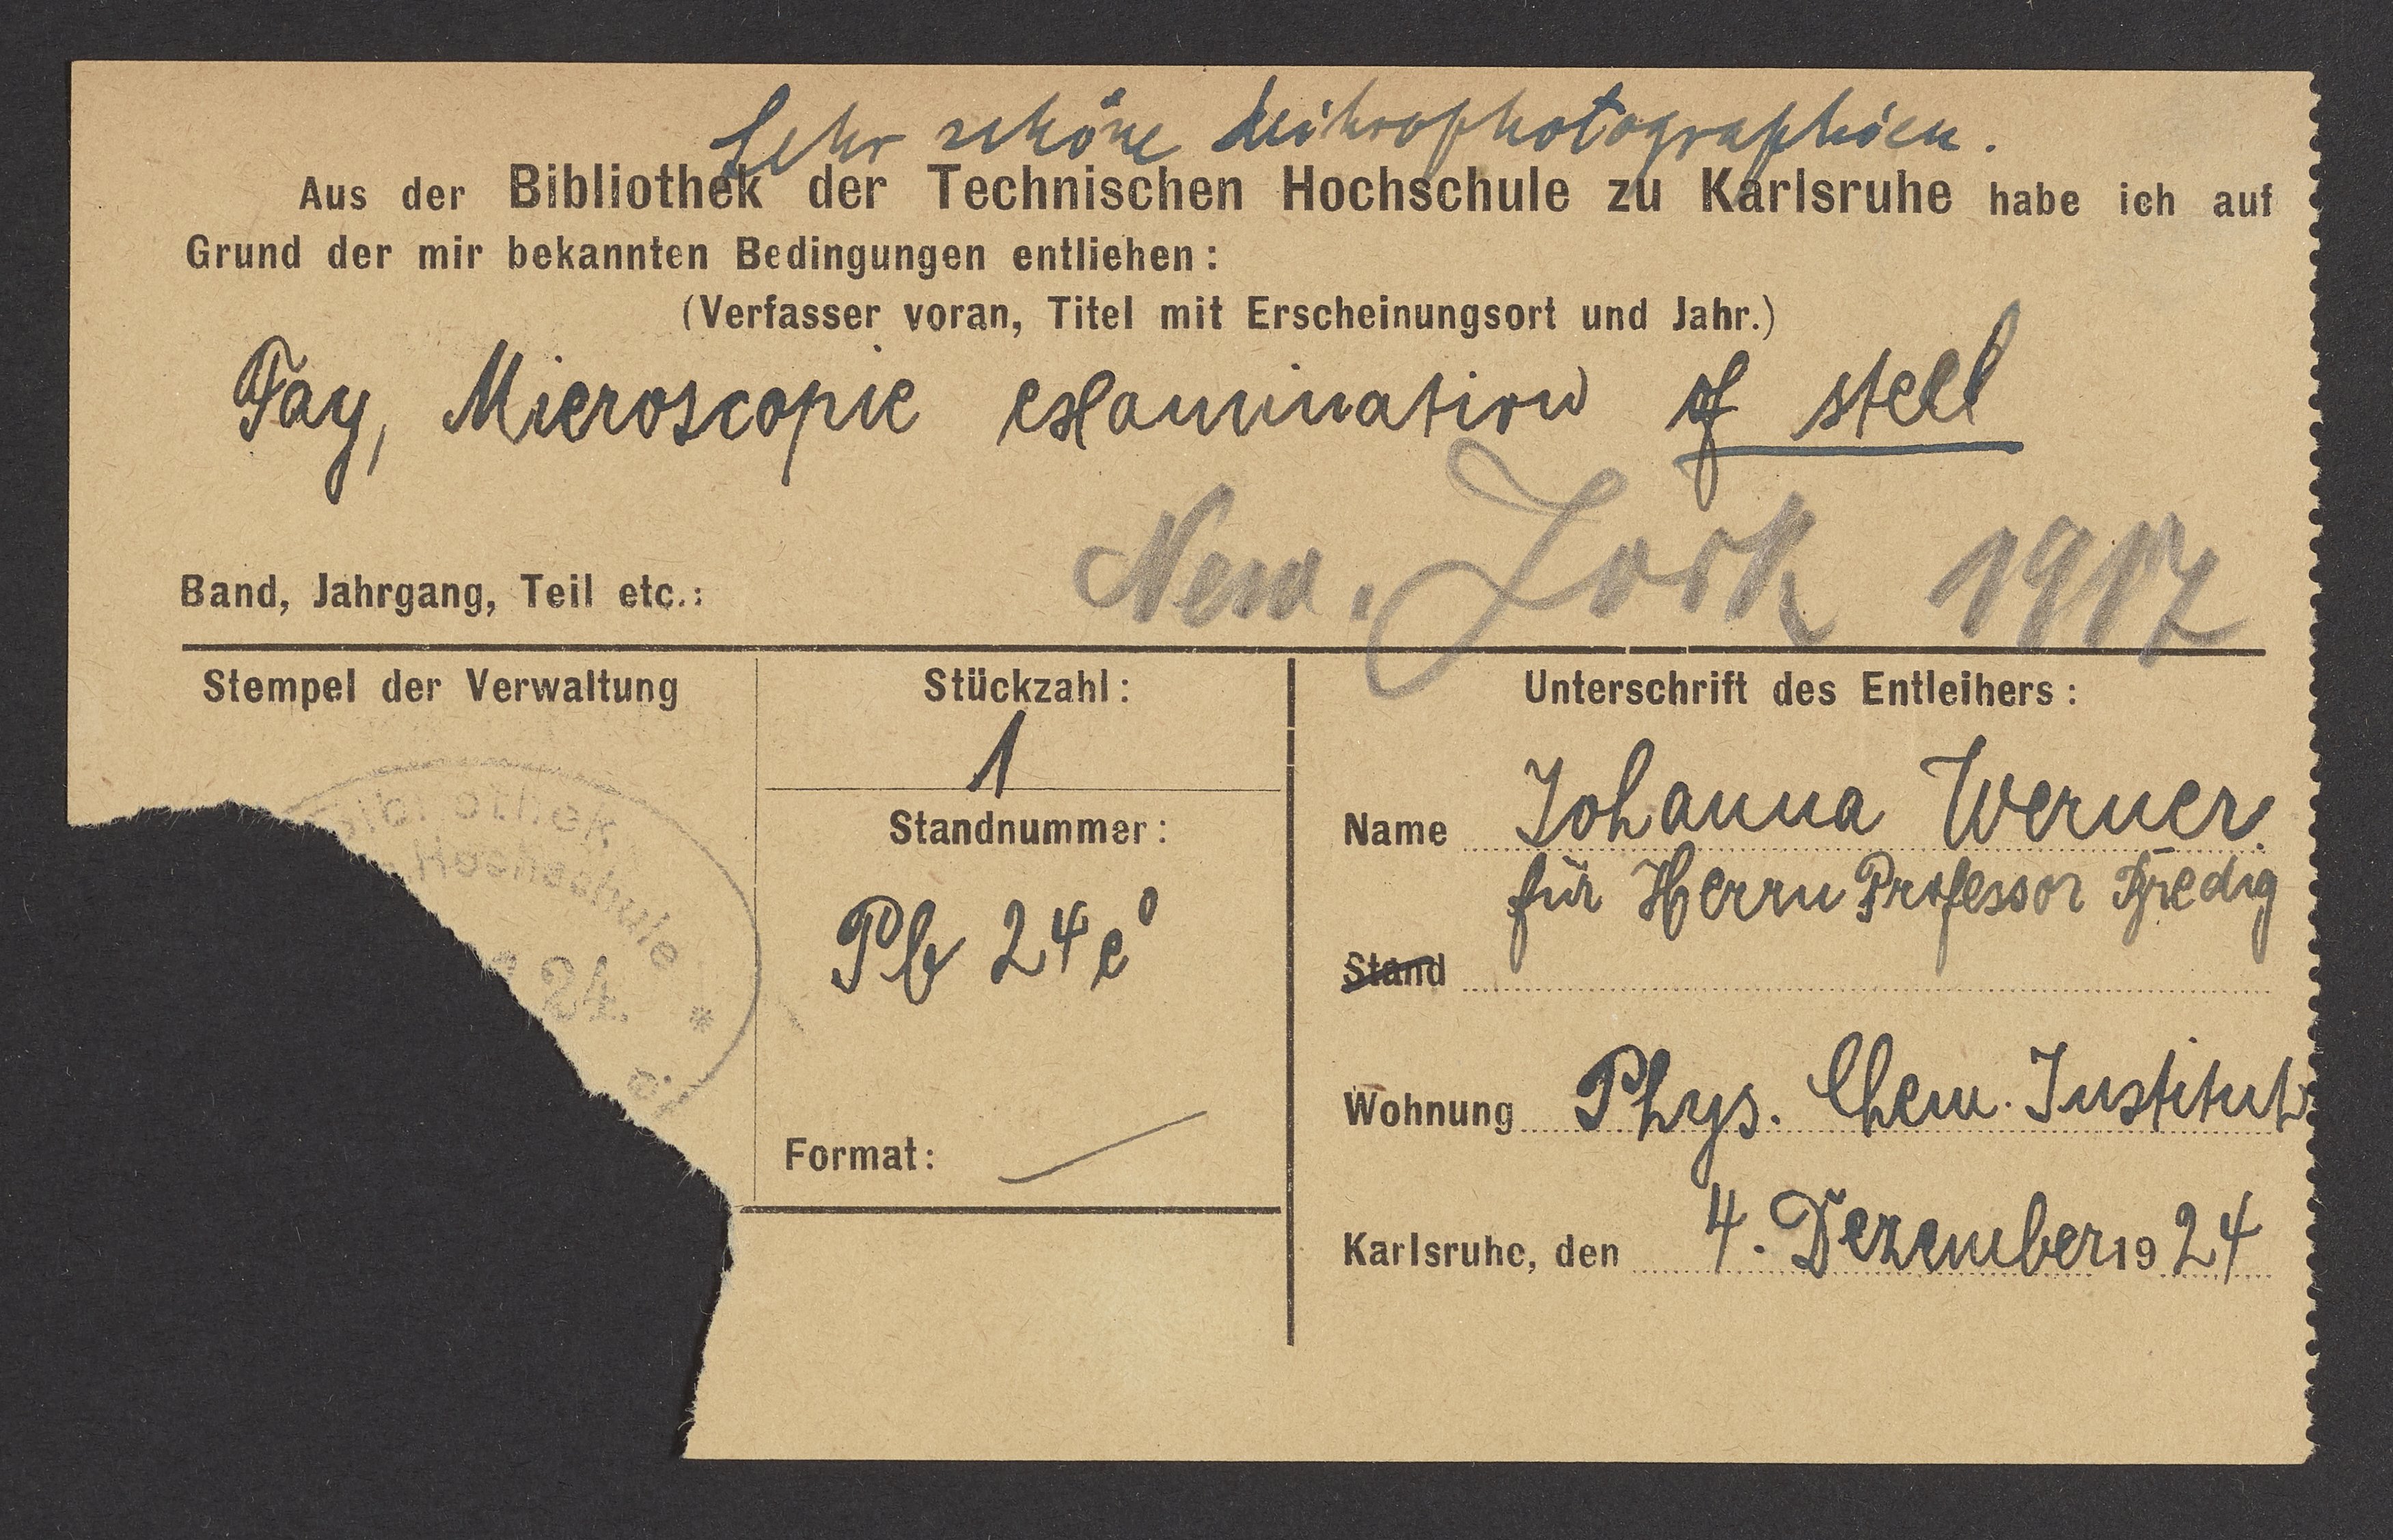 Sehr schöne Mikrophotographien.
Aus der Bibliothek der Technischen Hochschule zu Karlsruhe habe ich auf
Grund der mir bekannten Bedingungen entliehen:
(Verfasser voran, Titel mit Erscheinungsort und Jahr.)
Fay, Microscopic examination of steel
New-York 1917
Band, Jahrgang, Teil etc.:
Stempel der Verwaltung
Bibliothek
Hochschule
24. *
Stückzahl:
1
Standnummer:
Pb 24 e°
Format:
Unterschrift des Entleihers:
Name Johanna Werner.
für Herrn Professor Bredig
Stand
Wohnung Phys. Chem. Institut
Karlsruhe, den 4. Dezember 1924